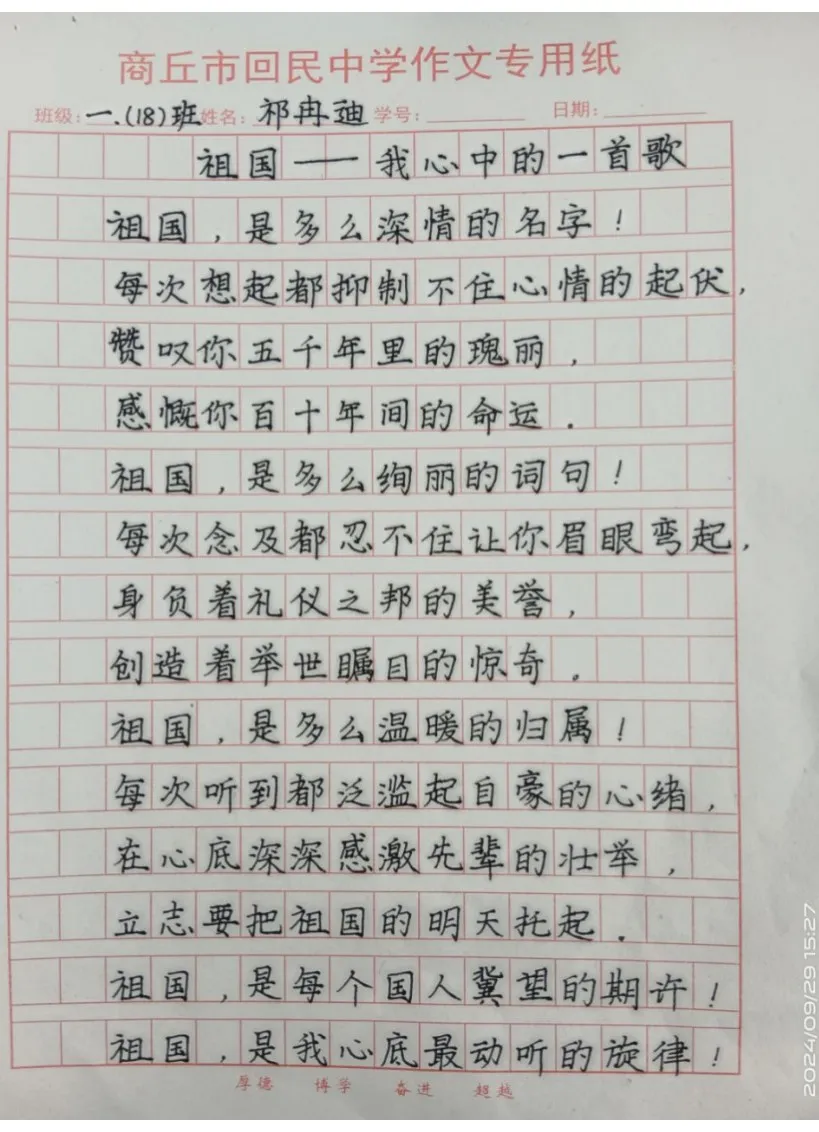 商丘市回民中学作文专用纸
班级：一.(18)班 姓名：祁冉迪 学号： 日期：
祖国——我心中的一首歌
祖国，是多么深情的名字！
每次想起都抑制不住心情的起伏，
赞叹你五千年里的瑰丽，
感慨你百十年间的命运．
祖国，是多么绚丽的词句！
每次念及都忍不住让你眉眼弯起，
身负着礼仪之邦的美誉，
创造着举世瞩目的惊奇。
祖国，是多么温暖的归属！
每次听到都泛滥起自豪的心绪，
在心底深深感激先辈的壮举，
立志要把祖国的明天托起．
祖国，是每个国人冀望的期许！
祖国，是我心底最动听的旋律！
厚德 博学 奋进 超越
2024/09/29 15:27